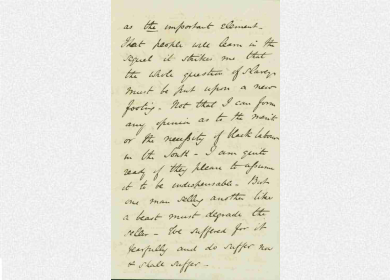 as the important element.
That people will learn in the
sequel it strikes me that
the whole question of slavery
must be put upon a new
footing. Not that I can form
any opinion as to the merit
or the necessity of black labour
in the South - I am quite
ready if they please to assume
it to be indispensable. But
one man selling another like
a beast must degrade the
seller - We suffered for it
fearfully and do suffer now
& shall suffer -